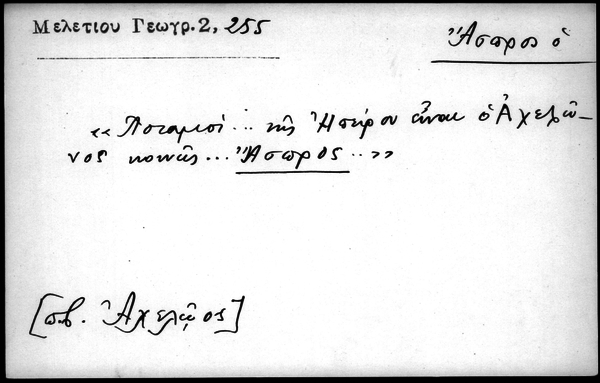 Μελετίου Γεωγρ. 2, 255
Ἄσπρος ὁ
«Ποταμοί... τῆς Ἠπείρου εἶναι ὁ Ἀχελῶ-
νος κοινῶς... Ἄσπρος...»
[πβ. Ἀχελῷος]